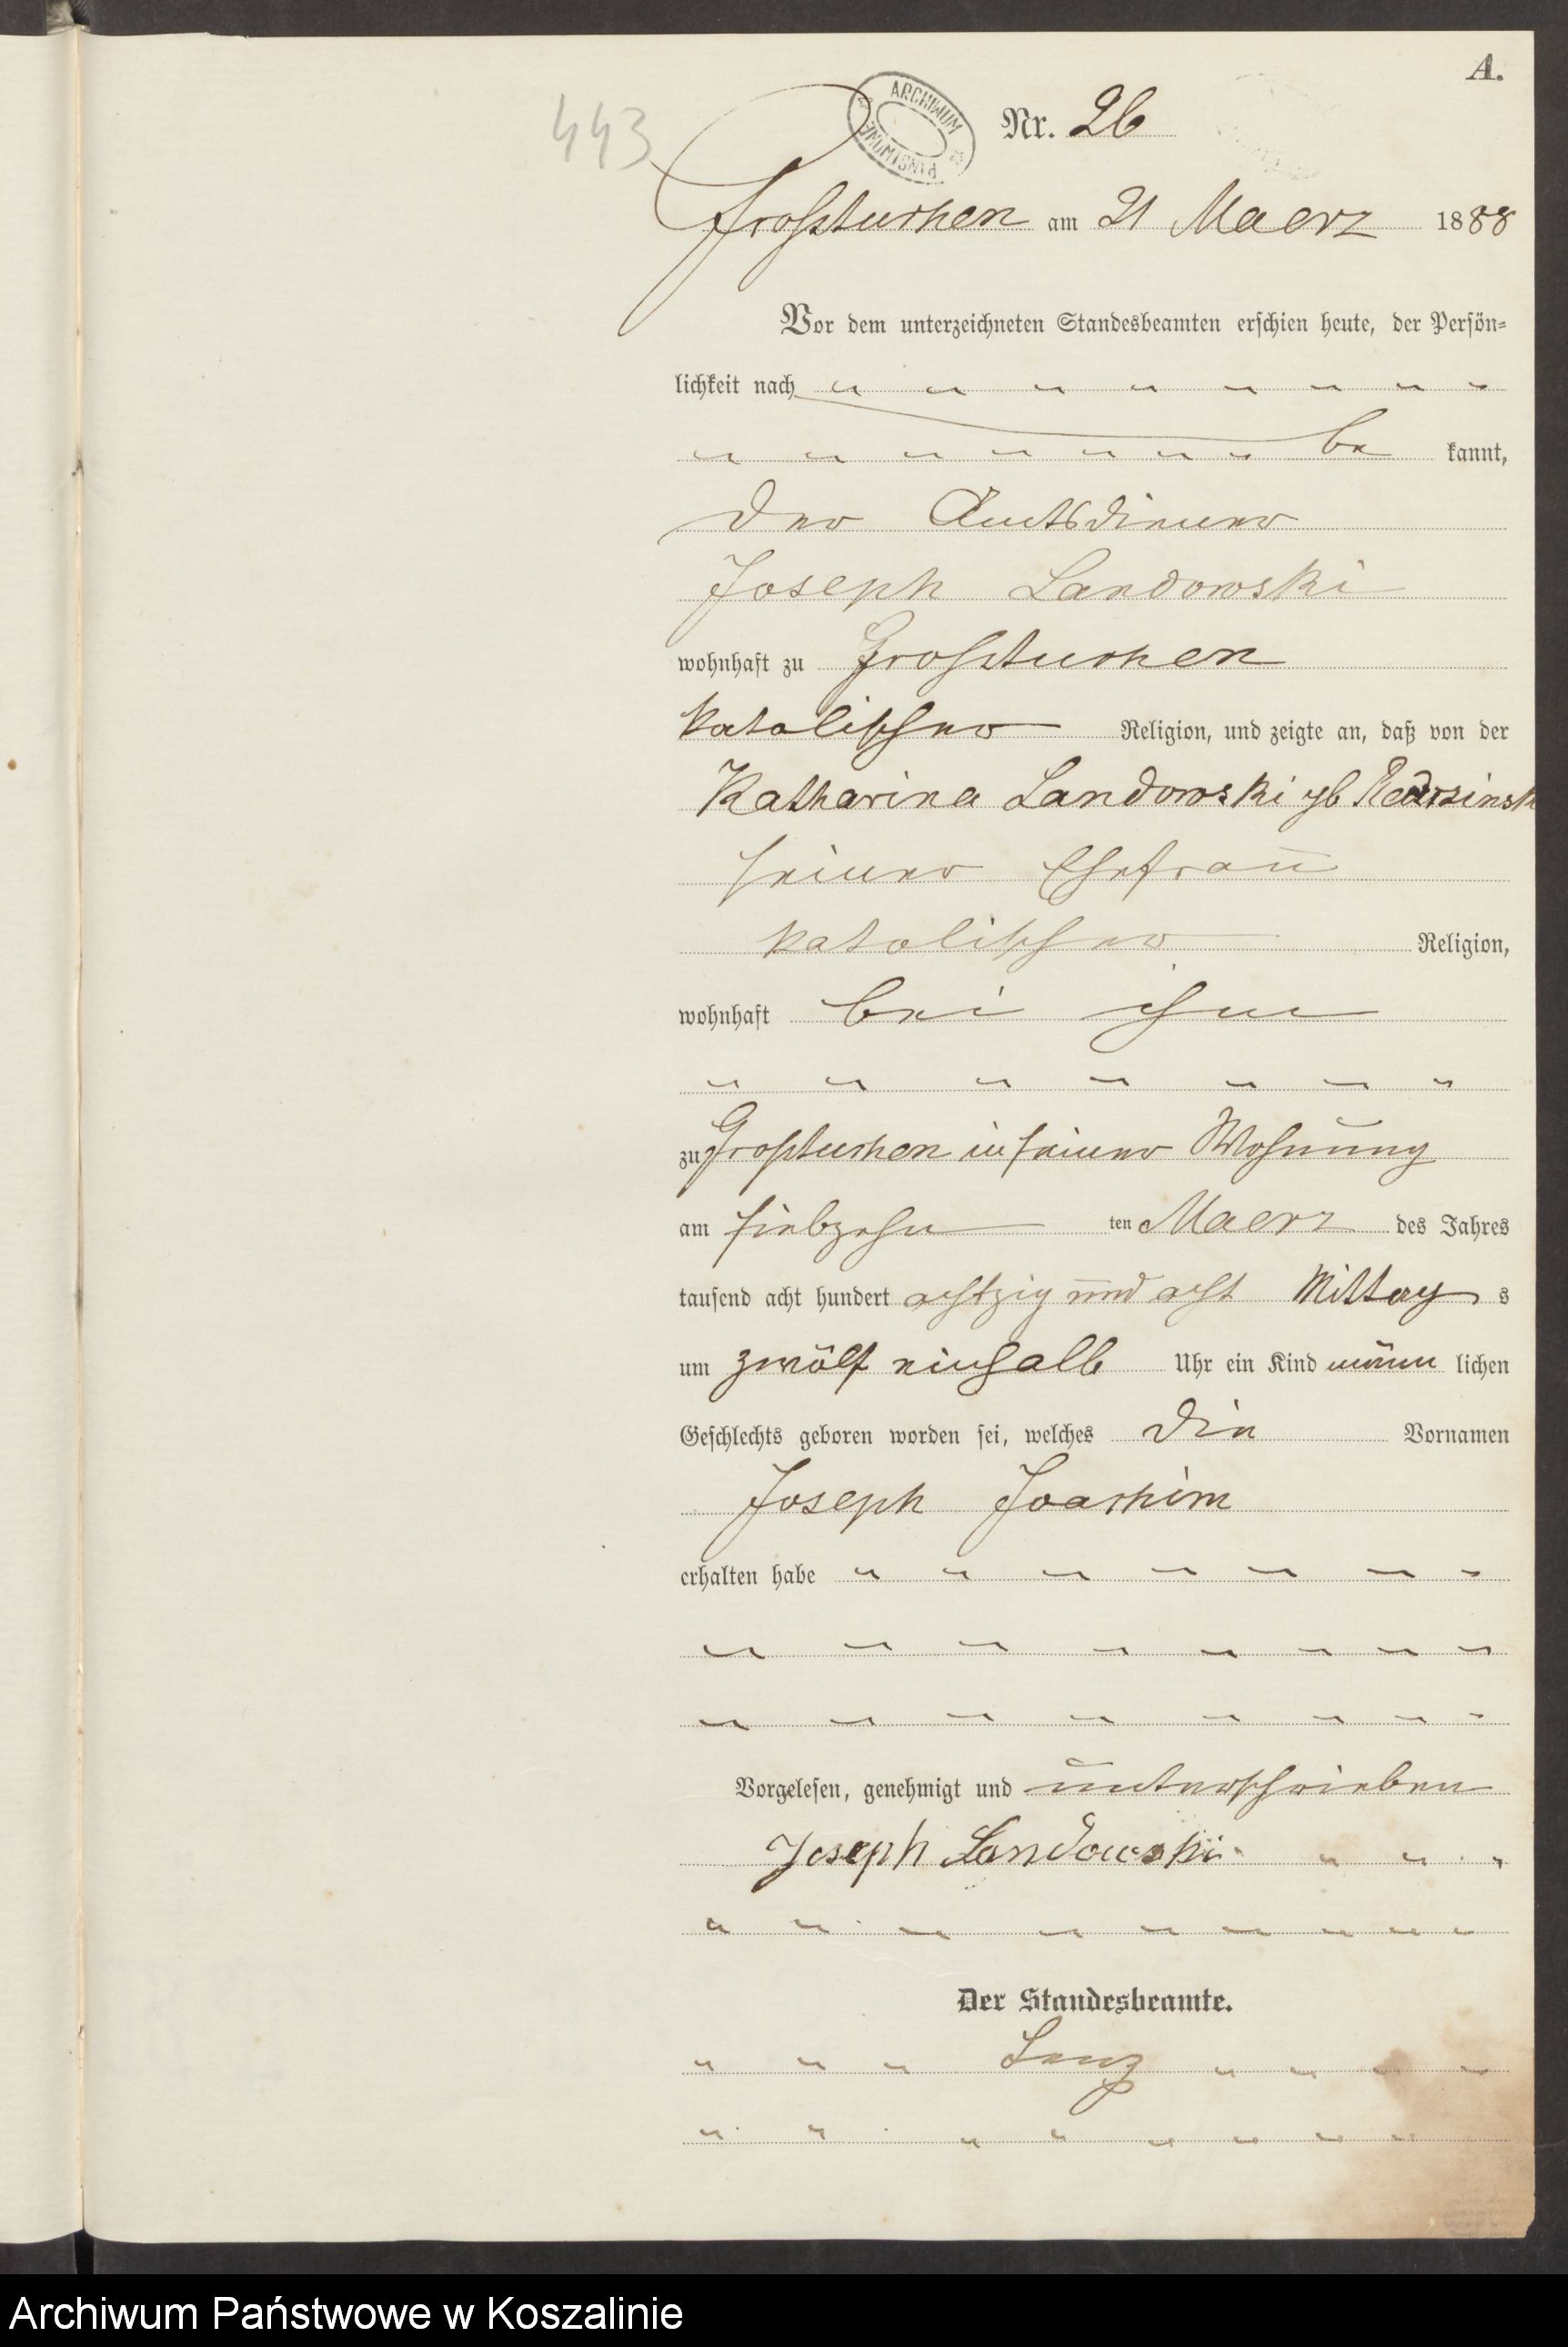 A.
443
ARCHIWUM PAŃSTWOWE
Nr. 26
Grosstuchen am 21 Maerz 1888
Vor dem unterzeichneten Standesbeamten erschien heute, der Persön-
lichkeit nach
be kannt,
der Amtsdiener
Joseph Landowski
wohnhaft zu Grosstuchen
katolischer Religion, und zeigte an, daß von der
Katharina Landowski gb
seiner Ehefrau
katolischer Religion,
wohnhaft bei ihm
zu Grosstuchen in seiner Wohnung
am siebzehn ten Maerz des Jahres
tausend acht hundert achtzig und acht Mittag s
um zwölf einhalb Uhr ein Kind männ lichen
Geschlechts geboren worden sei, welches die Vornamen
Joseph Joachim
erhalten habe
Vorgelesen, genehmigt und unterschrieben
Joseph Landowski
Der Standesbeamte.
Lenz
Archiwum Państwowe w Koszalinie